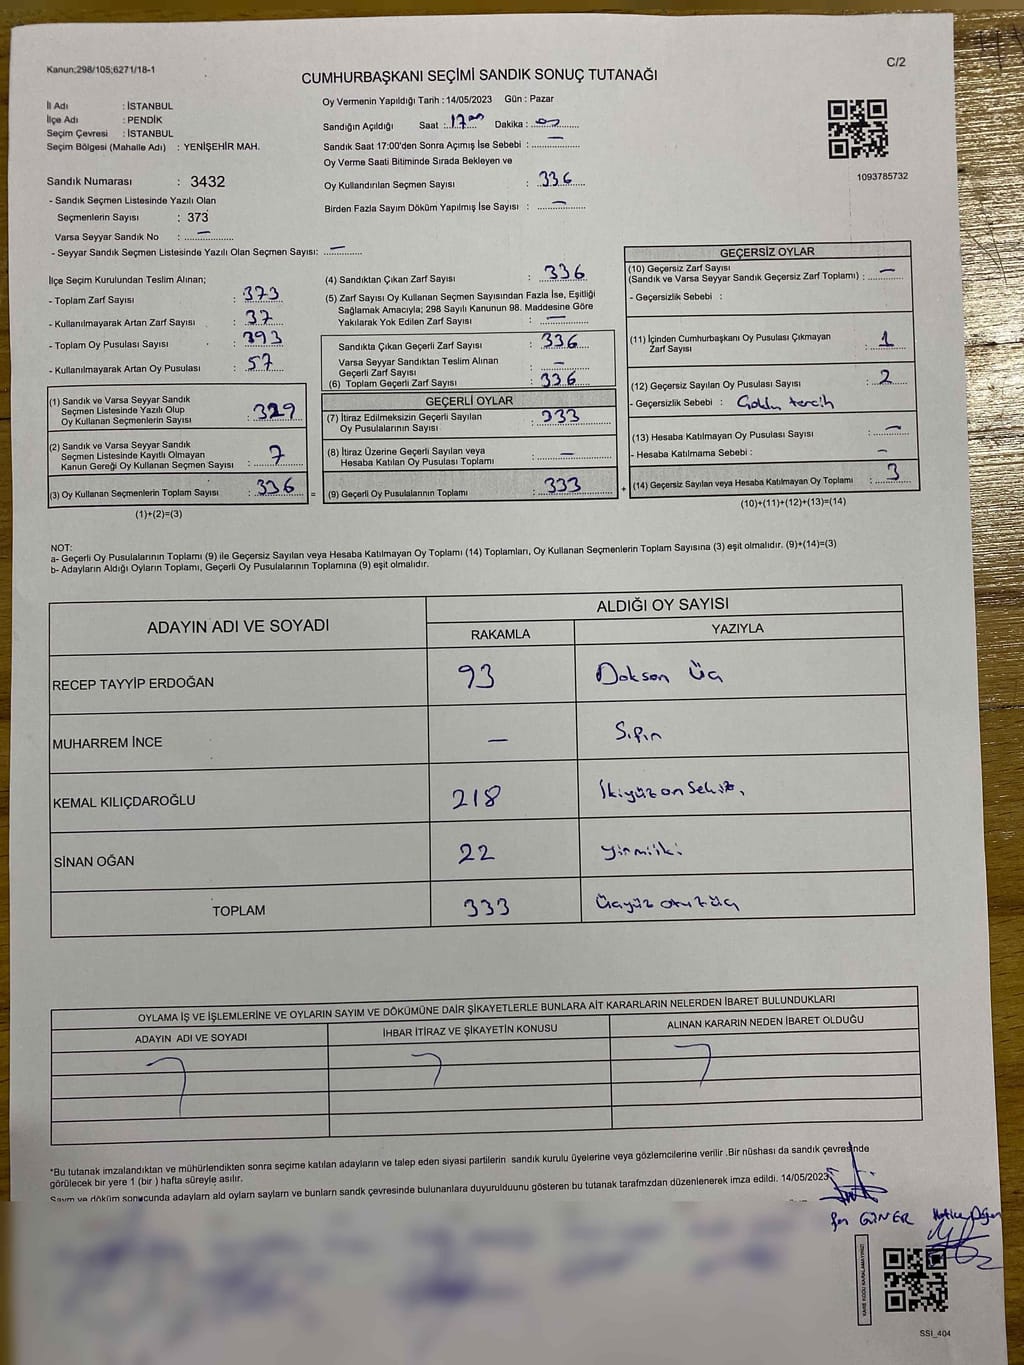 Kanun;298/105;6271/18-1
C/2
CUMHURBAŞKANI SEÇİMİ SANDIK SONUÇ TUTANAĞI
İl Adı : İSTANBUL
İlçe Adı : PENDİK
Seçim Çevresi : İSTANBUL
Seçim Bölgesi (Mahalle Adı) : YENİŞEHİR MAH.
Oy Vermenin Yapıldığı Tarih : 14/05/2023 Gün : Pazar
Sandığın Açıldığı Saat : 17 00 Dakika : 00
Sandık Saat 17:00'den Sonra Açımış İse Sebebi : —
Oy Verme Saati Bitiminde Sırada Bekleyen ve
Oy Kullandırılan Seçmen Sayısı : 336
Birden Fazla Sayım Döküm Yapılmış İse Sayısı : —
1093785732
Sandık Numarası : 3432
- Sandık Seçmen Listesinde Yazılı Olan
Seçmenlerin Sayısı : 373
Varsa Seyyar Sandık No : —
- Seyyar Sandık Seçmen Listesinde Yazılı Olan Seçmen Sayısı: —
İlçe Seçim Kurulundan Teslim Alınan;
- Toplam Zarf Sayısı : 373
- Kullanılmayarak Artan Zarf Sayısı : 37
- Toplam Oy Pusulası Sayısı : 393
- Kullanılmayarak Artan Oy Pusulası : 57
(1) Sandık ve Varsa Seyyar Sandık
Seçmen Listesinde Yazılı Olup
Oy Kullanan Seçmenlerin Sayısı : 329
(2) Sandık ve Varsa Seyyar Sandık
Seçmen Listesinde Kayıtlı Olmayan
Kanun Gereği Oy Kullanan Seçmen Sayısı : 7
(3) Oy Kullanan Seçmenlerin Toplam Sayısı : 336 =
(1)+(2)=(3)
(4) Sandıktan Çıkan Zarf Sayısı : 336
(5) Zarf Sayısı Oy Kullanan Seçmen Sayısından Fazla İse, Eşitliği
Sağlamak Amacıyla; 298 Sayılı Kanunun 98. Maddesine Göre
Yakılarak Yok Edilen Zarf Sayısı : —
Sandıkta Çıkan Geçerli Zarf Sayısı : 336
Varsa Seyyar Sandıktan Teslim Alınan
Geçerli Zarf Sayısı : —
(6) Toplam Geçerli Zarf Sayısı : 336
GEÇERLİ OYLAR
(7) İtiraz Edilmeksizin Geçerli Sayılan
Oy Pusulalarının Sayısı : 333
(8) İtiraz Üzerine Geçerli Sayılan veya
Hesaba Katılan Oy Pusulası Toplamı : —
(9) Geçerli Oy Pusulalarının Toplamı : 333 +
GEÇERSİZ OYLAR
(10) Geçersiz Zarf Sayısı
(Sandık ve Varsa Seyyar Sandık Geçersiz Zarf Toplamı) : —
- Geçersizlik Sebebi :
(11) İçinden Cumhurbaşkanı Oy Pusulası Çıkmayan
Zarf Sayısı : 1
(12) Geçersiz Sayılan Oy Pusulası Sayısı : 2
- Geçersizlik Sebebi : Çoklu tercih
(13) Hesaba Katılmayan Oy Pusulası Sayısı : —
- Hesaba Katılmama Sebebi : —
(14) Geçersiz Sayılan veya Hesaba Katılmayan Oy Toplamı : 3
(10)+(11)+(12)+(13)=(14)
NOT:
a- Geçerli Oy Pusulalarının Toplamı (9) ile Geçersiz Sayılan veya Hesaba Katılmayan Oy Toplamı (14) Toplamları, Oy Kullanan Seçmenlerin Toplam Sayısına (3) eşit olmalıdır. (9)+(14)=(3)
b- Adayların Aldığı Oyların Toplamı, Geçerli Oy Pusulalarının Toplamına (9) eşit olmalıdır.
ADAYIN ADI VE SOYADI
ALDIĞI OY SAYISI
RAKAMLA YAZIYLA
RECEP TAYYİP ERDOĞAN 93 Doksan Üç
MUHARREM İNCE — Sıfır
KEMAL KILIÇDAROĞLU 218 İkiyüz on Sekiz,
SİNAN OĞAN 22 yirmiiki
TOPLAM 333 Üçyüz otuz üç
OYLAMA İŞ VE İŞLEMLERİNE VE OYLARIN SAYIM VE DÖKÜMÜNE DAİR ŞİKAYETLERLE BUNLARA AİT KARARLARIN NELERDEN İBARET BULUNDUKLARI
ADAYIN ADI VE SOYADI İHBAR İTİRAZ VE ŞİKAYETİN KONUSU ALINAN KARARIN NEDEN İBARET OLDUĞU
*Bu tutanak imzalandıktan ve mühürlendikten sonra seçime katılan adayların ve talep eden siyasi partilerin sandık kurulu üyelerine veya gözlemcilerine verilir .Bir nüshası da sandık çevresinde
görülecek bir yere 1 (bir ) hafta süreyle asılır.
Sayım ve döküm sonucunda adayların ald oyların sayların ve bunların sandk çevresinde bulunanlara duyurulduunu gösteren bu tutanak tarafmzdan düzenlenerek imza edildi. 14/05/2023
GÜNER Hatice
KARE KODU KARALAMAYINIZ!
SSI_404